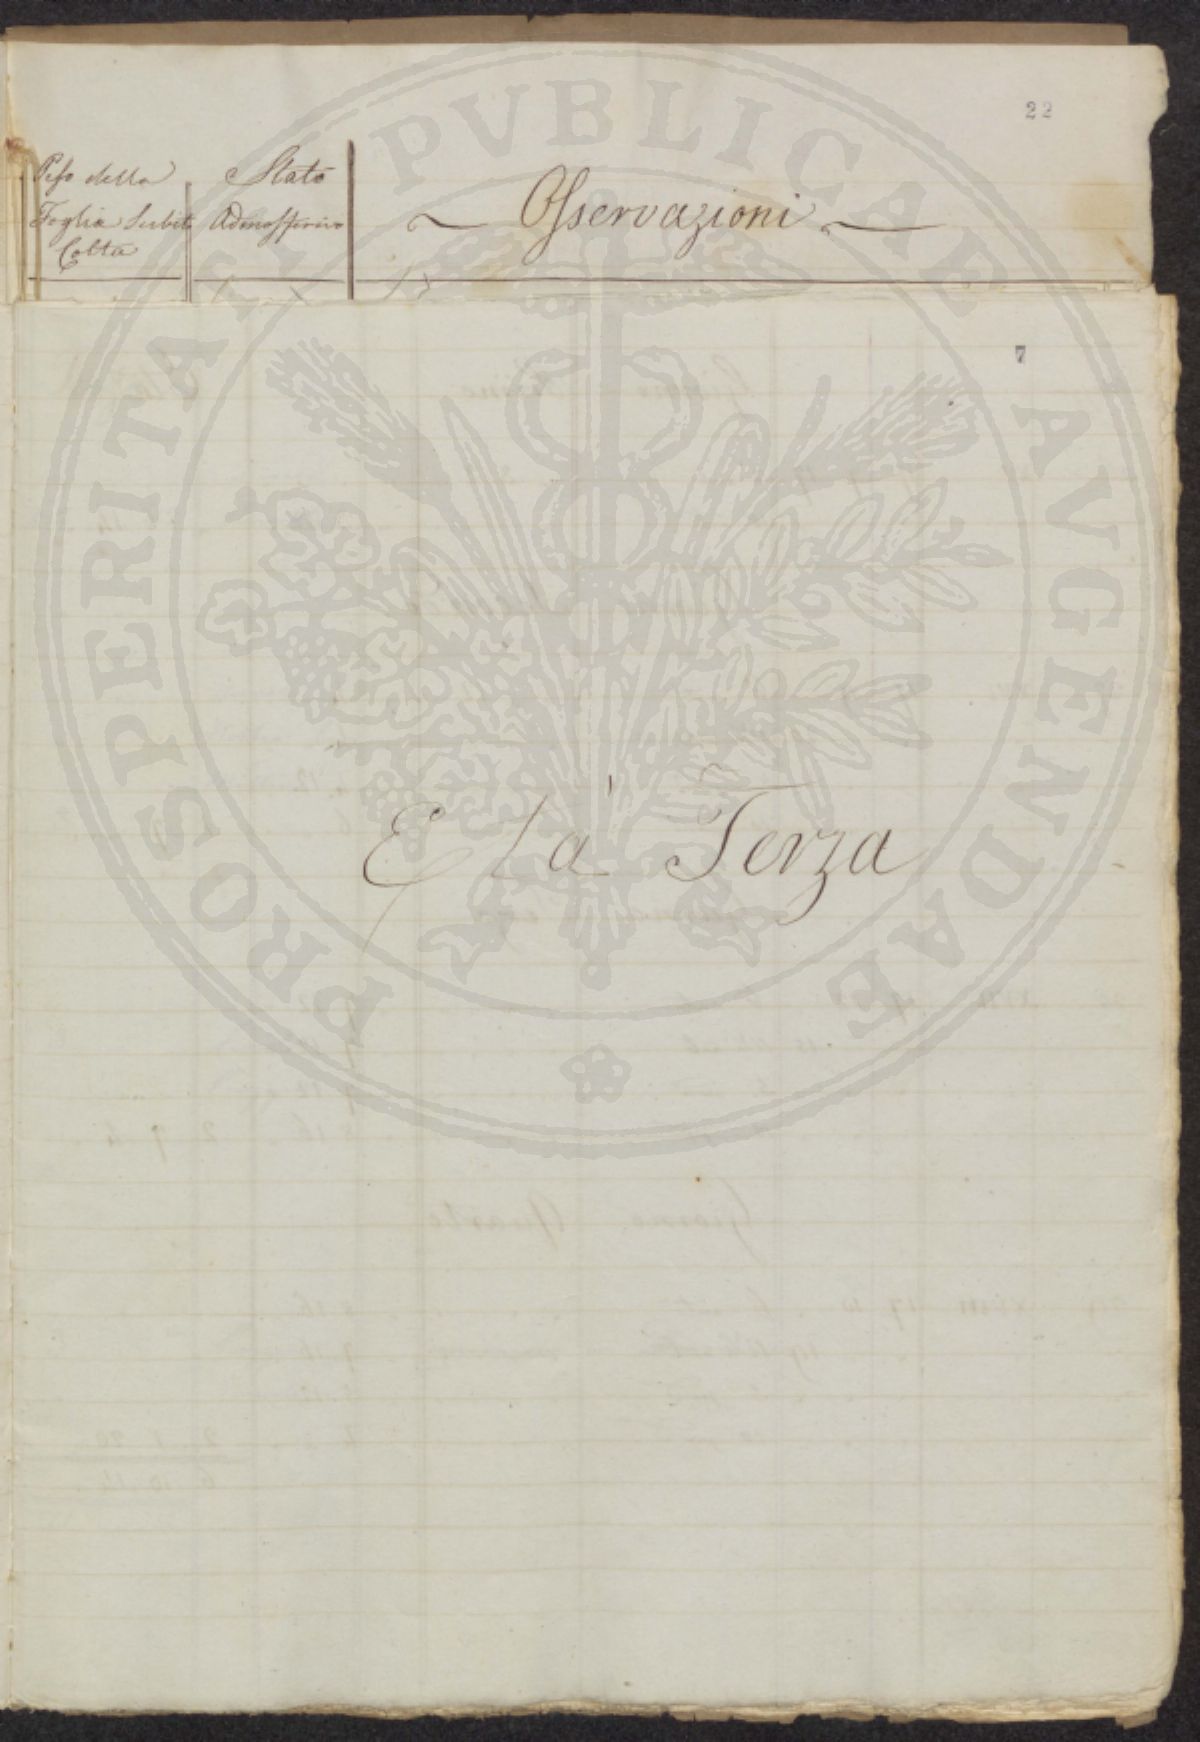 22
Peso della
Foglia Subito
Colta
Stato
Admosferico
Osservazioni
7
Età Terza
PROSPERITATI PVBLICAE AVGENDAE